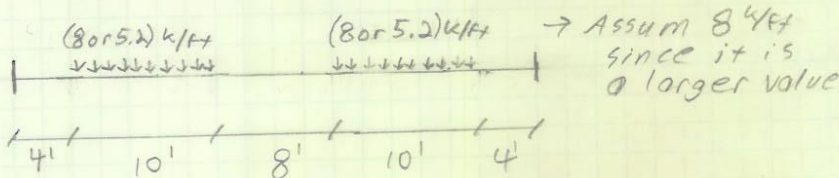 (8 or 5.2) k/ft (8 or 5.2) k/ft → Assum 8 k/ft
since it is
a larger value
4' 10' 8' 10' 4'